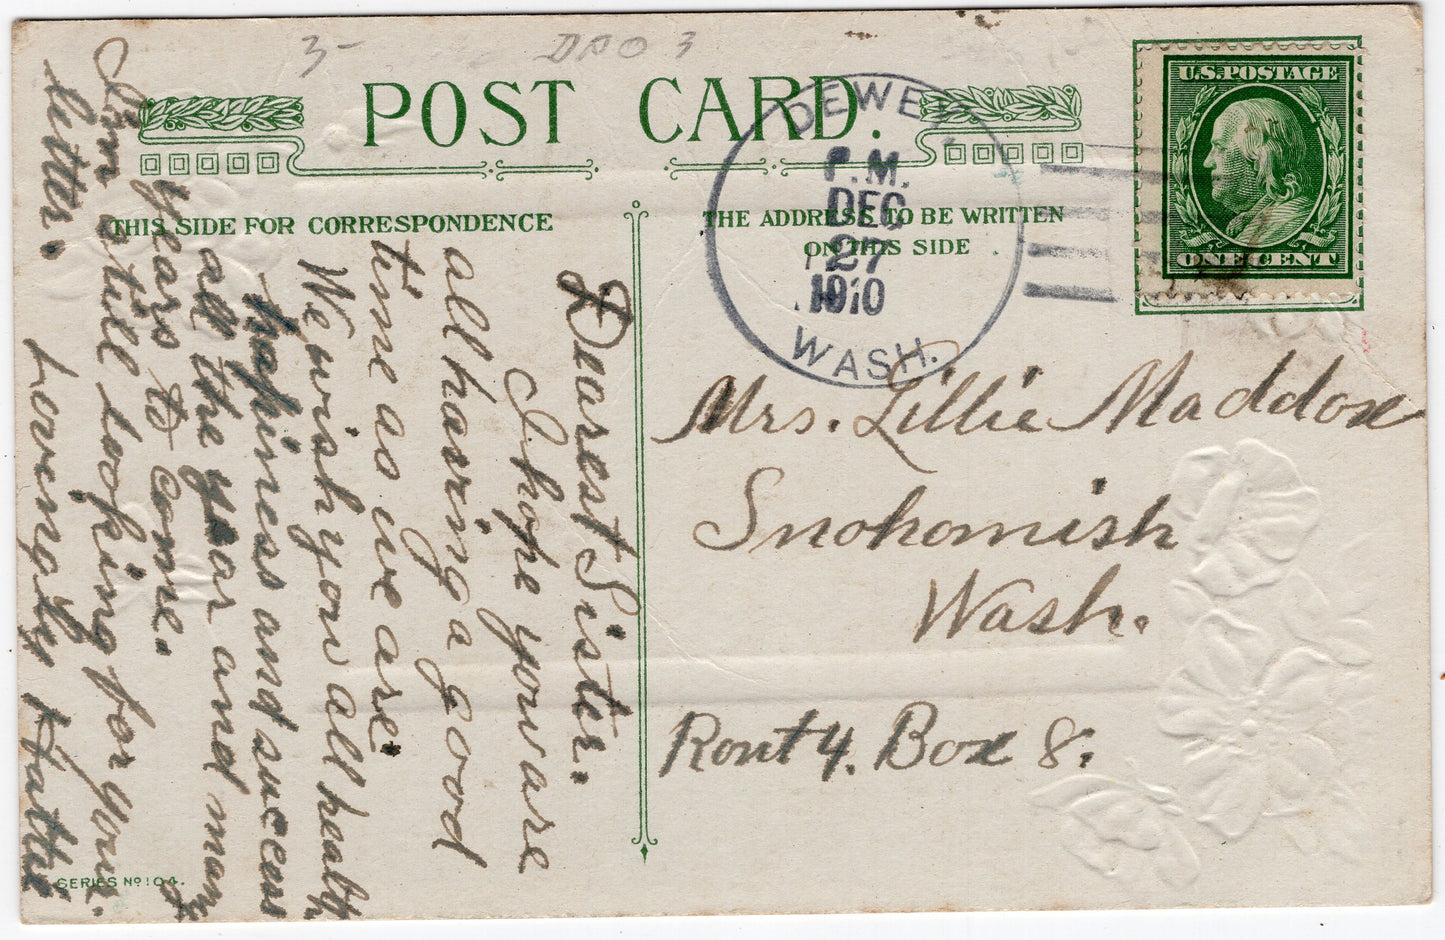 3-
DPO 3
POST CARD.
THIS SIDE FOR CORRESPONDENCE
THE ADDRESS TO BE WRITTEN
ON THIS SIDE
DEWEY,
P.M.
DEC
27
1910
WASH.
U.S. POSTAGE
ONE CENT
Mrs. Lillie Maddox
Snohomish
Wash.
Rout 4. Box 8.
Dearest Sister.
I hope you are
all having a good
time as we are.
We wish you all health
happiness and success
all the year and many
years to come.
I'm still looking for your
letter.
Lovingly Hattie
SERIES No 104.